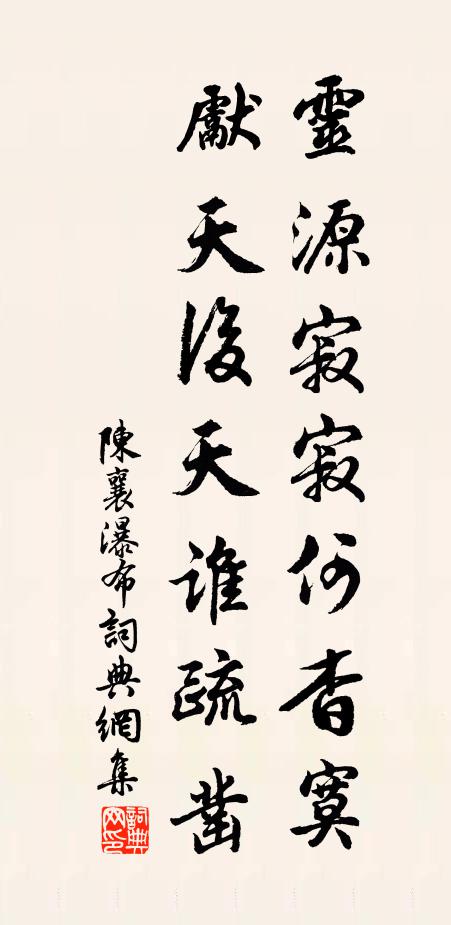 靈源寂寂何杳冥
獻天後天誰疏鑿
陳襄瀑布詞典網集
詞典網印